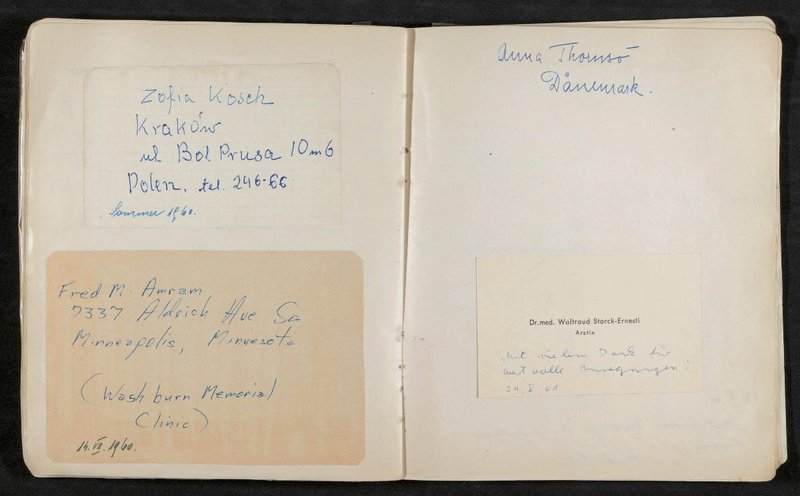 Zofia Kosch
Kraków
ul. Bol. Prusa 10 m 6
Polen, tel. 246-66
Sommer 1960.
Fred M. Amram
7337 Aldrich Ave So
Minneapolis, Minnesota
(Washburn Memorial
Clinic)
14. VII. 1960.
Anna Thomsó
Dänemark.
Dr. med. Waltraud Storck-Ernesti
Ärztin
Mit vielem Dank für
wertvolle Anregungen!
24. V. 61